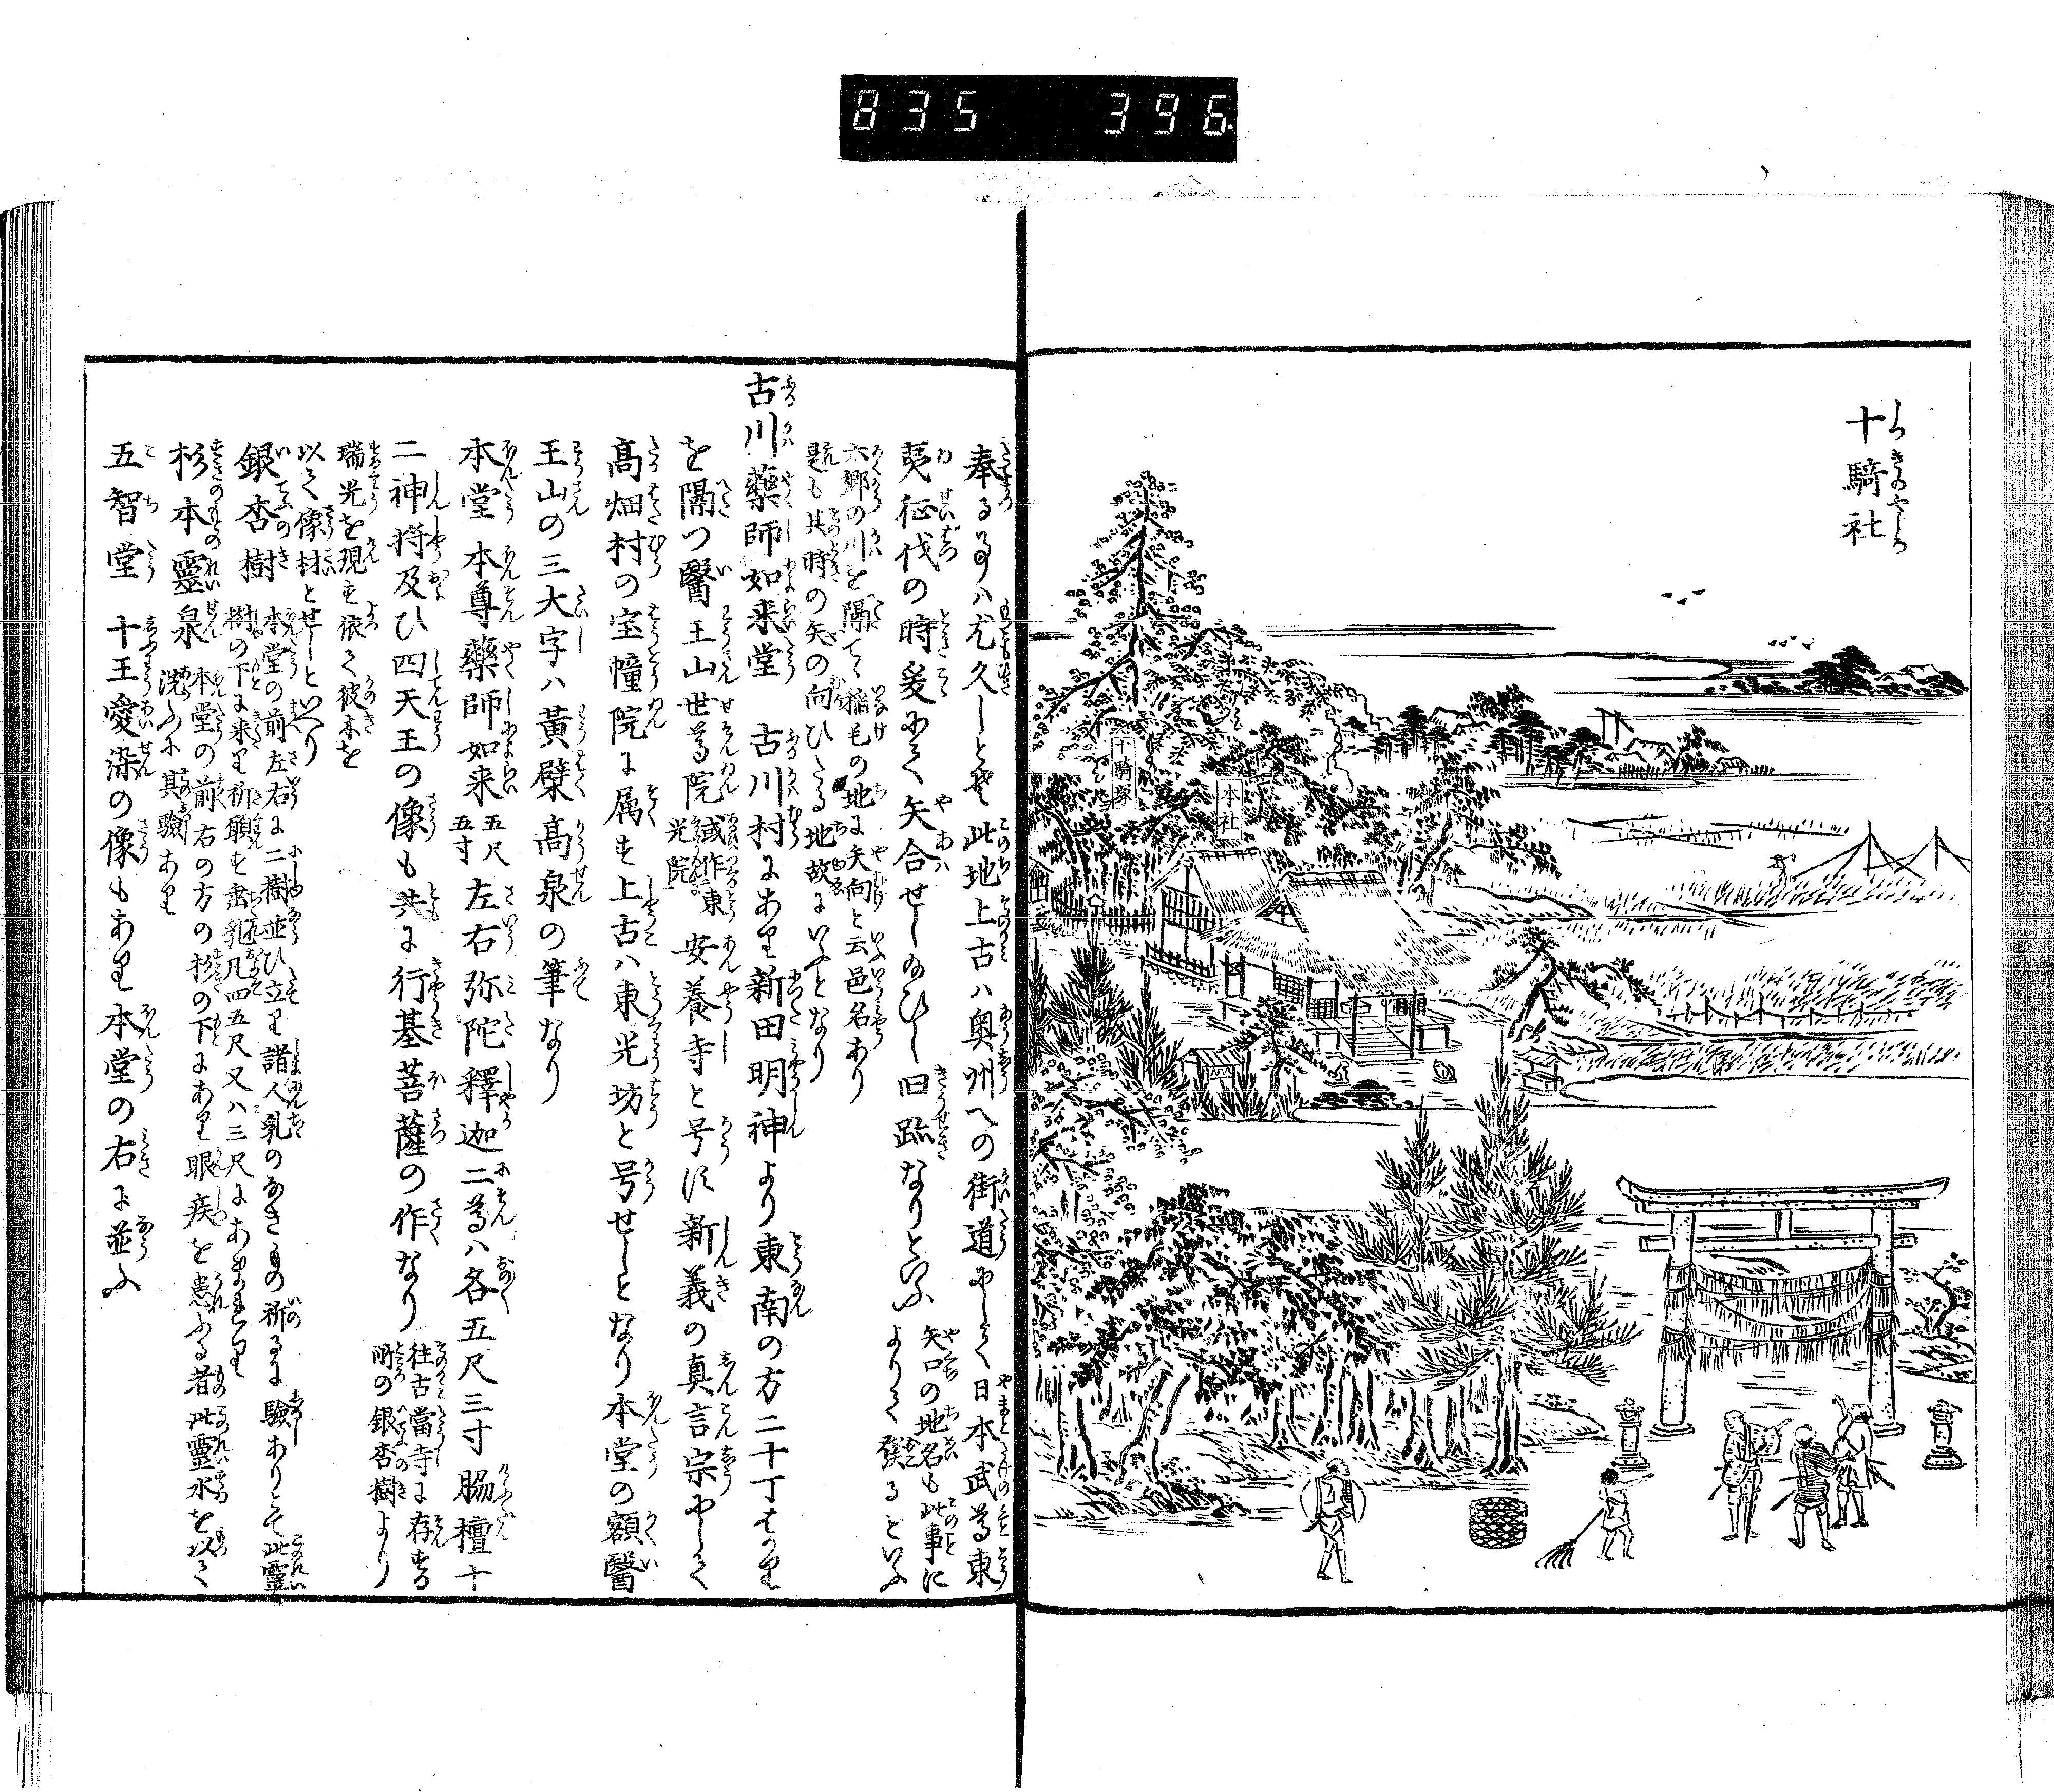 835 396
十騎社
十騎塚
本社
奉る事ハ尤久しとぞ此地上古ハ奥州への街道にして日本武尊東
夷征伐の時爰にて矢合せし給ひし旧跡なりといふ
矢口の地名も此事に
よりて発るといふ
六郷の川を隔てゝ稲毛の地に矢向と云邑名あり
是も其時の矢の向ひたる地故にいふとなり
古川藥師如来堂 古川村にあり新田明神より東南の方二十丁はかり
を隔つ醫王山世尊院
或作東
光院
安養寺と号す新義の真言宗にして
髙畑村の宝幢院に属す上古ハ東光坊と号せしとなり本堂の額醫
王山の三大字ハ黃檗髙泉の筆なり
本堂 本尊藥師如来
五尺
五寸
左右弥陀釋迦二尊ハ各五尺三寸脇檀十
二神将及ひ四天王の像も共に行基菩薩の作なり
往古當寺に存する
所の銀杏樹より
瑞光を現す依て彼木を
以て像材とせしといへり
銀杏樹
本堂の前左右に二樹並ひ立り諸人乳のなきもの祈るに驗ありとて此靈
樹の下に来り祈願す垂乳凡四五尺又ハ三尺にあまれり
杉本靈泉
本堂の前右の方の杉の下にあり眼疾を患ふる者此靈水を以て
洗ふに其驗あり
五智堂 十王愛染の像もあり本堂の右に並ふ